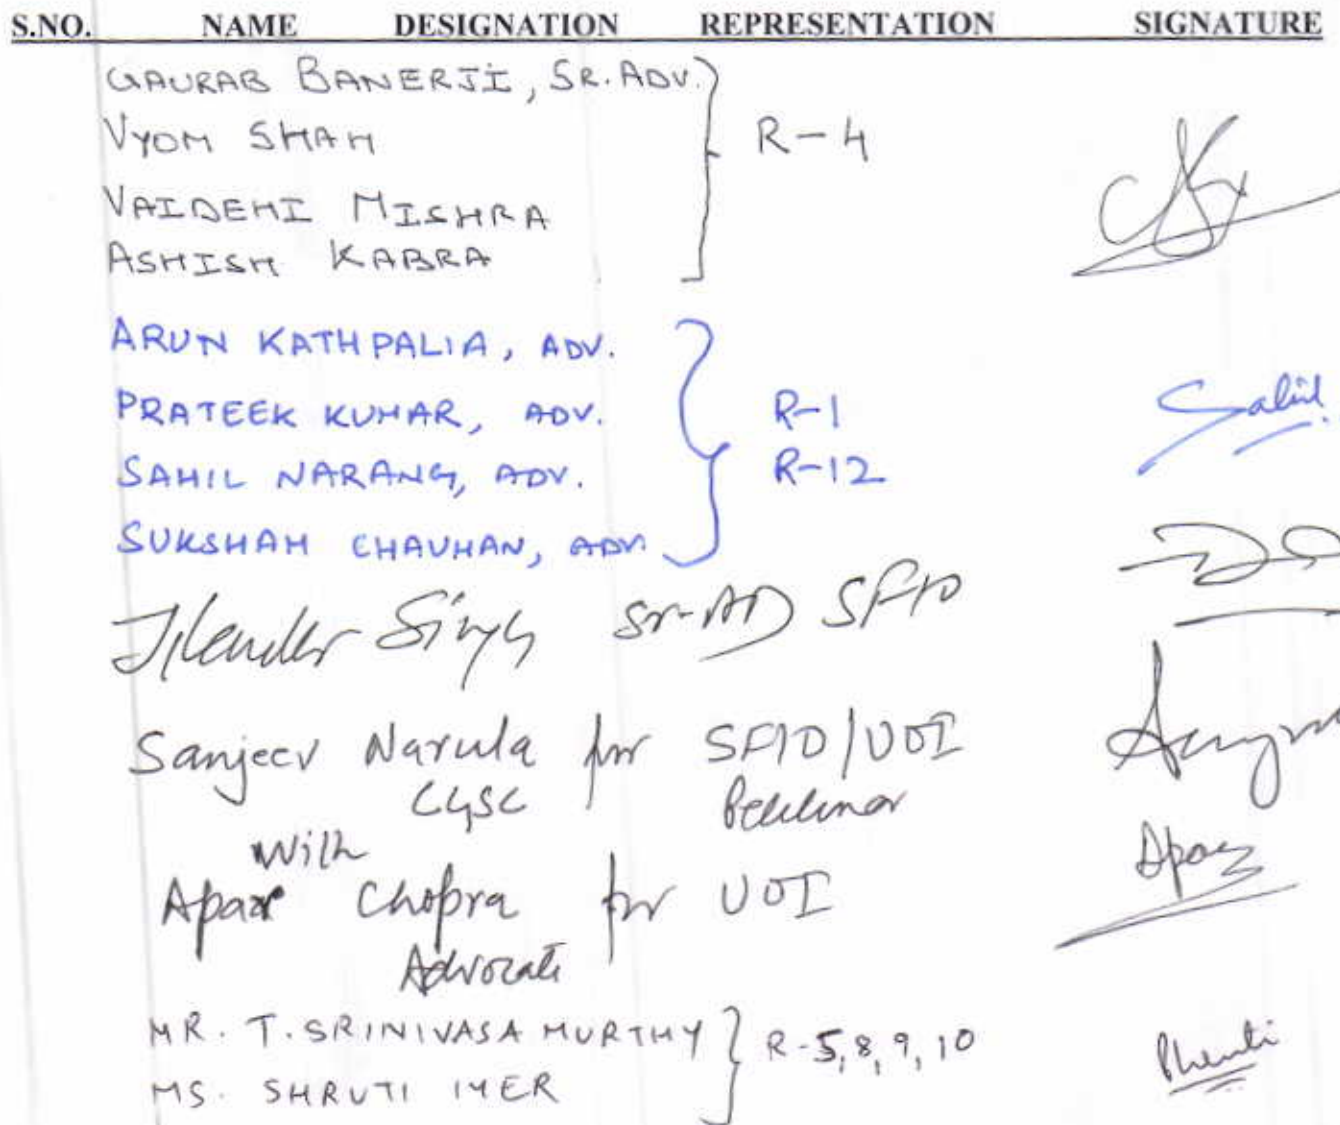 S.NO. NAME DESIGNATION REPRESENTATION SIGNATURE
GAURAB BANERJI, SR. ADV.
VYOM SHAH R-4
VAIDEHI MISHRA
ASHISH KABRA
ARUN KATHPALIA, ADV.
PRATEEK KUMAR, ADV. R-1 Sahil
SAHIL NARANG, ADV. R-12
SUKSHAM CHAUHAN, ADV.
Jitender Singh Sr-AD SFIO
Sanjeev Narula for SFIO/UOI
CGSC Petitioner
With
Apar Chopra for UOI Apar
Advocate
MR. T. SRINIVASA MURTHY R-5,8,9,10
MS. SHRUTI IYER